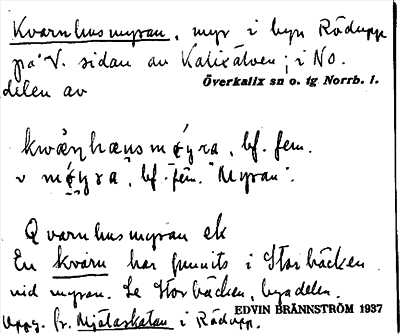 Kvarnhusmyran, myr i byn Rödupp
på V. sidan av Kalixälven; i No.
Överkalix sn o. tg Norrb. l.
delen av
bf. fem.
v bf. fem. "Myran".
Qvarnhusmyran ek
En kvarn har funnits i Storbäcken
vid myran. Se Storbäcken, byadelen.
EDVIN BRÄNNSTRÖM 1937
Uppg. fr. Mjötaskatan i Rödupp.